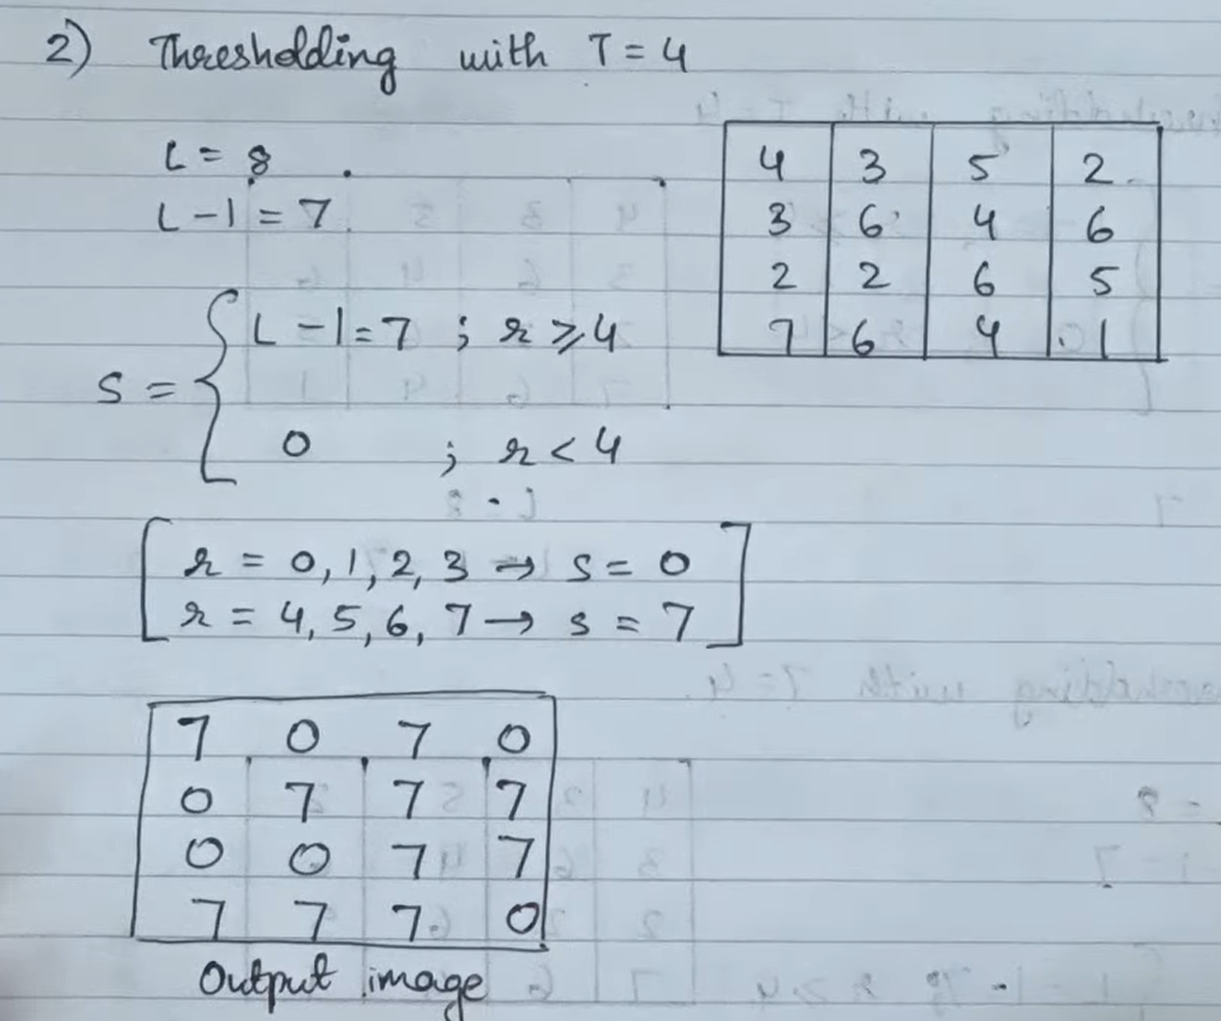 2) Thresholding with T = 4
L = 8
L - 1 = 7
4 3 5 2
3 6 4 6
2 2 6 5
7 6 4 1
S = { L - 1 = 7 ; r ≥ 4
0 ; r < 4
[ r = 0, 1, 2, 3 → S = 0
r = 4, 5, 6, 7 → S = 7 ]
7 0 7 0
0 7 7 7
0 0 7 7
7 7 7 0
Output image